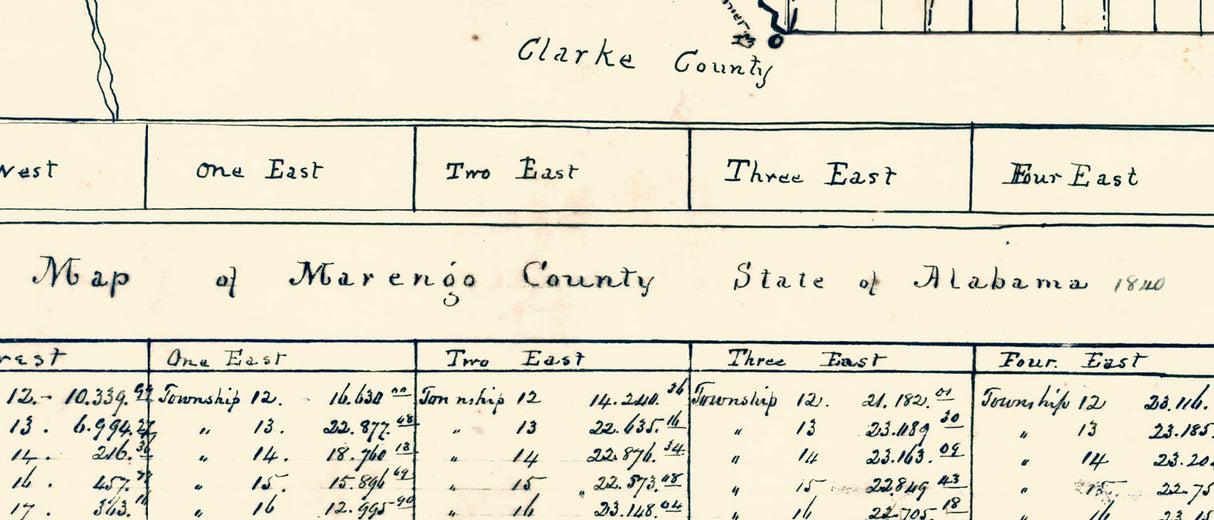 Clarke County
One East Two East Three East Four East
Map of Marengo County State of Alabama 1840
One East Two East Three East Four East
12. 10.339. Township 12. 16.630 00 Township 12 14.240. 36 Township 12. 21.182. 01 Township 12 23.116.
13. 6.994. 27 " 13. 22.877. 48 " 13 22.635. 16 " 13 23.089 30 " 13 23.185
14. 216. " 14. 18.760 13 " 14 22.876. 34 " 14 23.163. 09 " 14 23.20
16 457. " 15. 15.896 69 " 15 22.573. 08 " 15 22.849 43 " 15. 22.75
17. 363. " 16 12.995 90 " 16 23.148. 04 " 16 22.705. 18 " 16